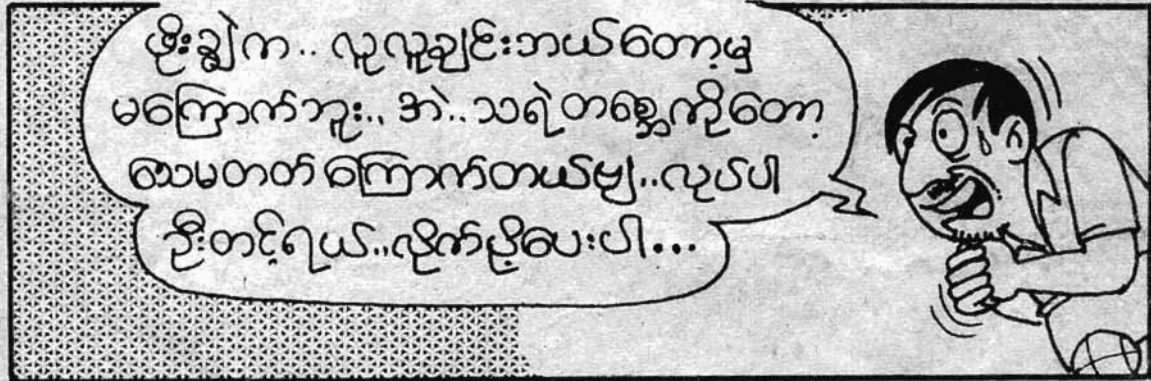 ဖိုးချွဲက.. လူလူချင်းဘယ်တော့မှ
မကြောက်ဘူး.. အဲ.. သရဲတစ္ဆေကိုတော့
သေမတတ် ကြောက်တယ်ဗျ.. လုပ်ပါ
ဦးတင့်ရယ်.. လိုက်ညှိပေးပါ...